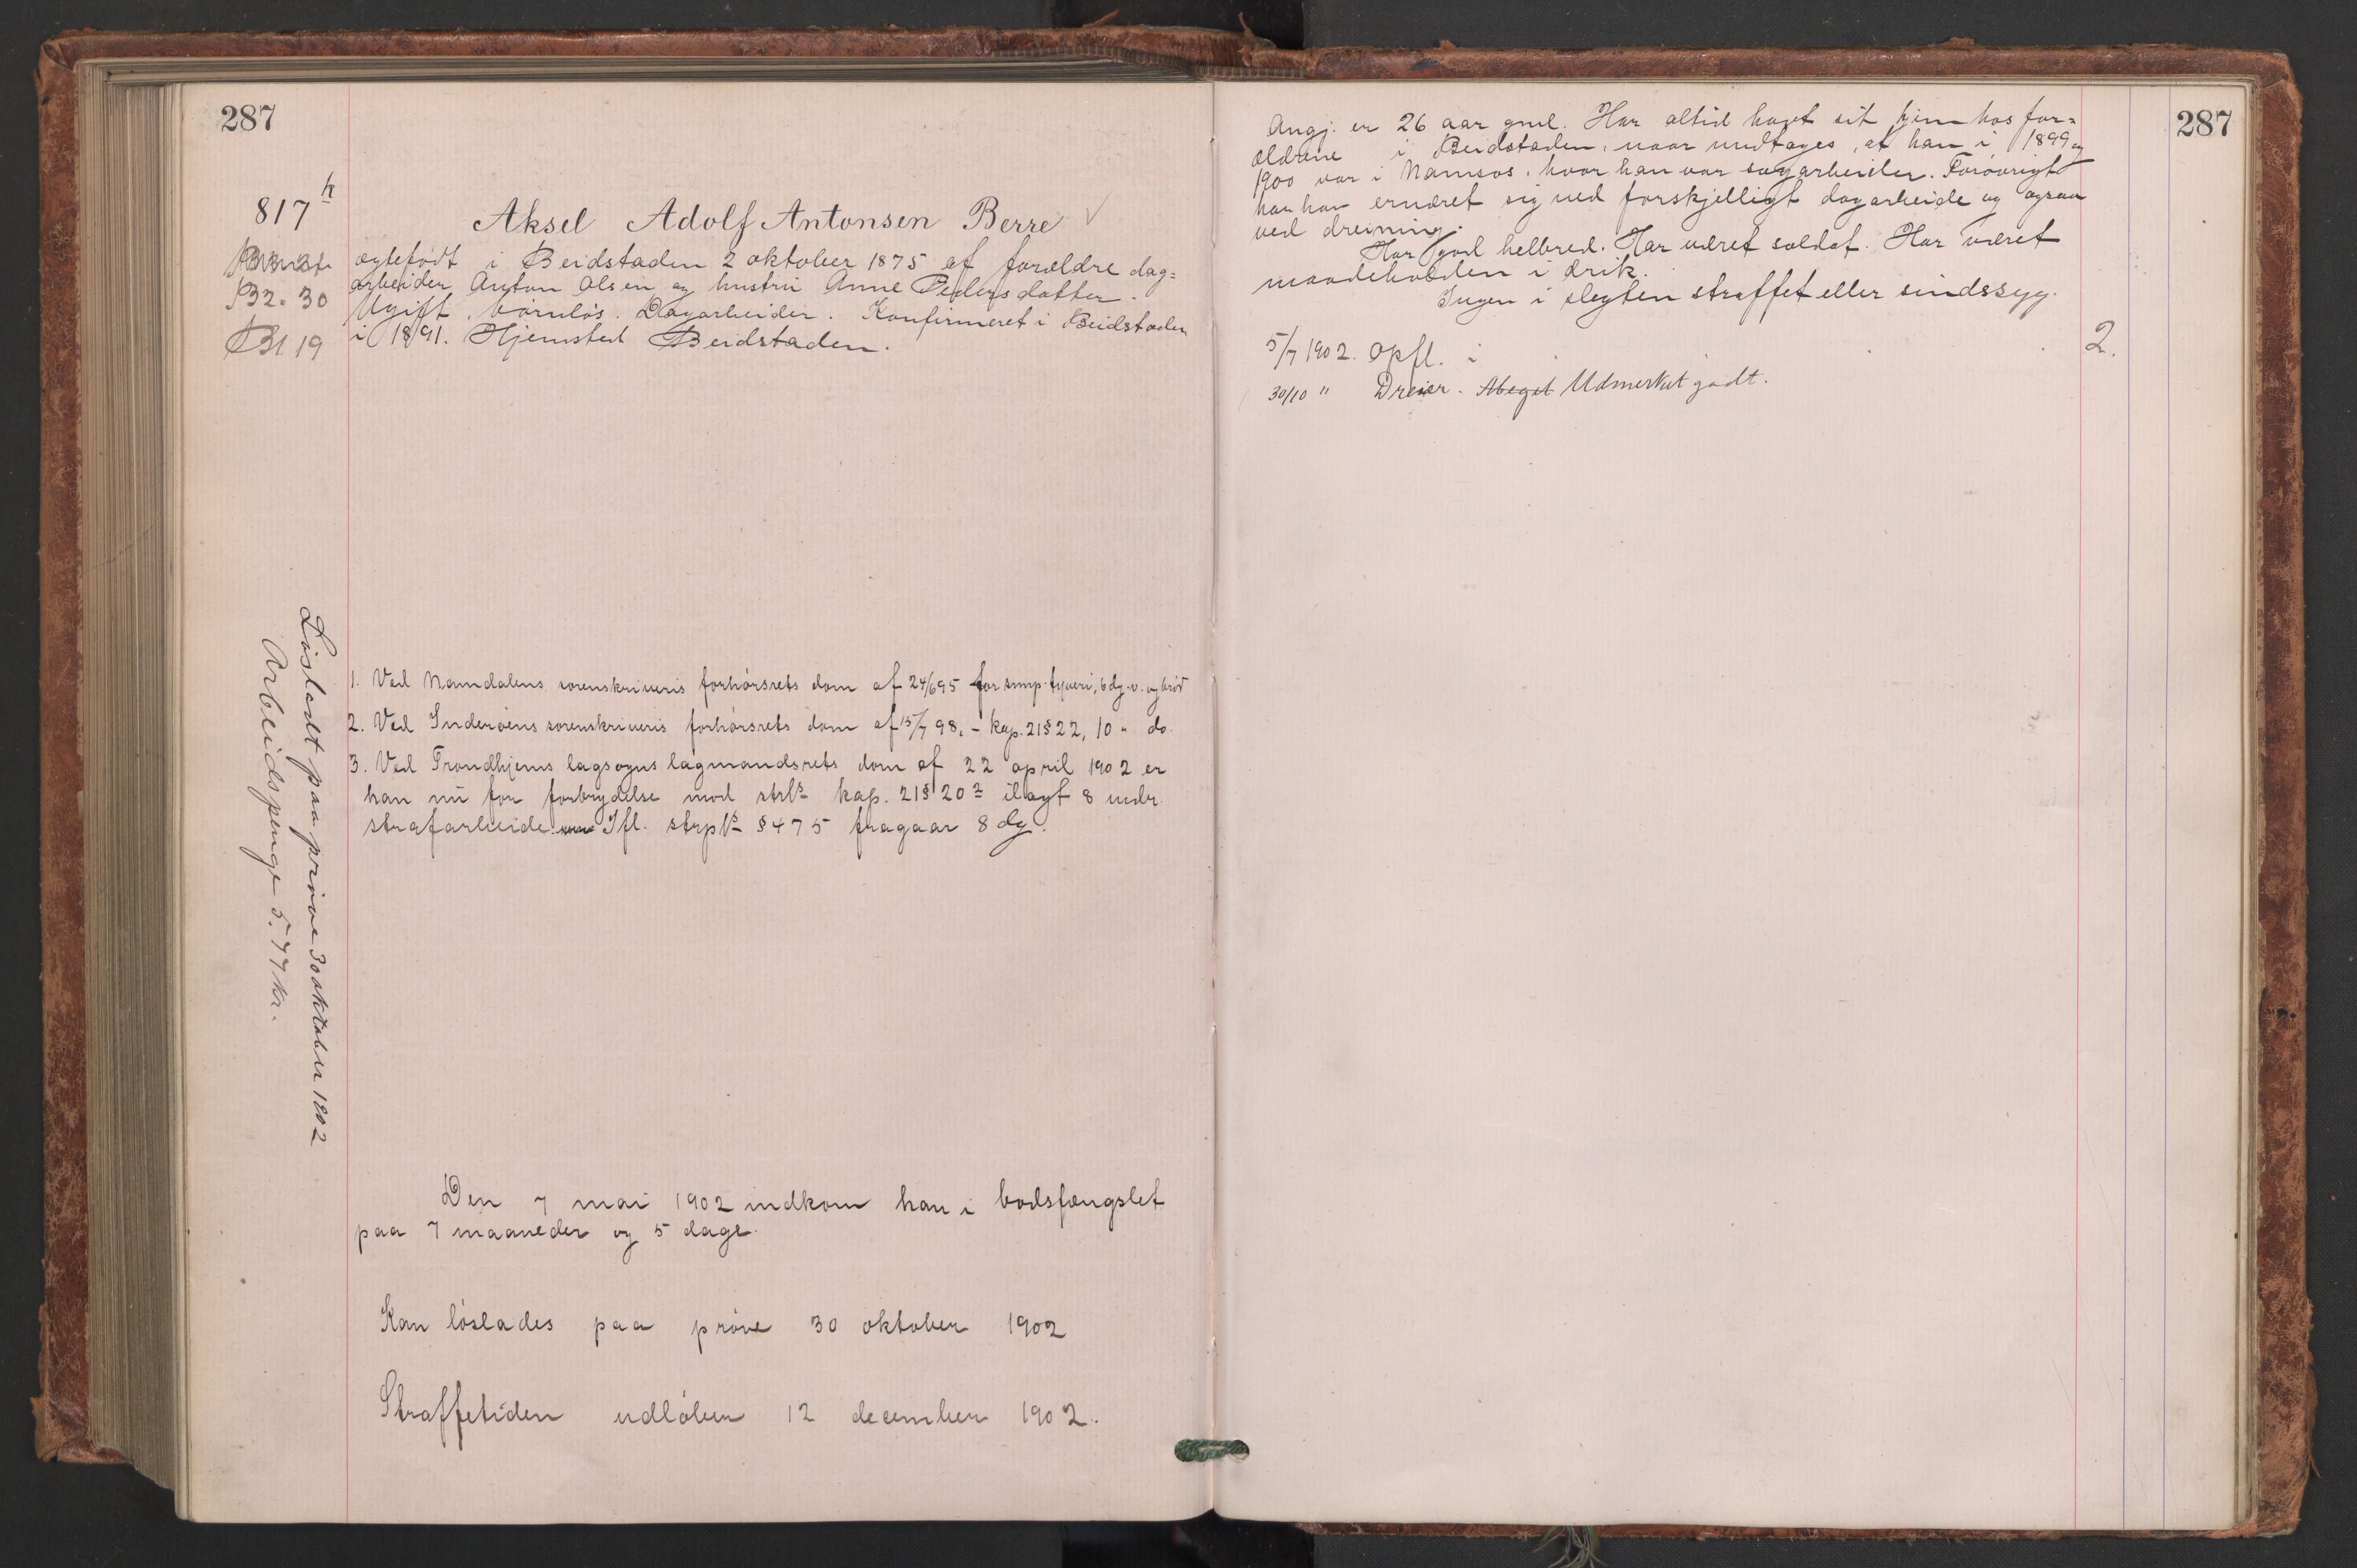 287
817 h
B2. 30
B1 19
Aksel Adolf Antonsen Berre
ægtefødt i Beidstaden 2 oktober 1875 af forældre dag=
arbeider Anton Olsen og hustru Anne Pedersdatter.
Ugift, børnløs. Dagarbeider. Konfirmeret i Beidstaden
i 1891. Hjemsted Beidstaden.
1. Ved Namdalens sorenskriveris forhørsrets dom af 24/6 95 for simp. tyveri, 6 dg. v. og brød
2. Ved Inderøens sorenskriveris forhørsrets dom af 15/7 98, - kap. 21 § 22, 10 " do.
3. Ved Trondhjems lagsogns lagmandsrets dom af 22 april 1902 er
han nu for forbrydelse mod strls kap. 21 § 20 2 ilagt 8 mdr.
strafarbeide. Ifl. strpls § 475 fragaar 8 dg.
Løsladt paa prøve 30 oktober 1902
Arbeidspenge 5.77 kr.
Den 7 mai 1902 indkom han i bodsfængslet
paa 7 maaneder og 5 dage.
Kan løslades paa prøve 30 oktober 1902
Straffetiden udløber 12 december 1902.
287
Angj. er 26 aar gml. Har altid havt sit hjem hos for=
ældrene i Beidstaden, naar undtages, at han i 1899 og
1900 var i Namsos, hvor han var sagarbeider. Forøvrigt
har han ernæret sig ved forskjelligt dagarbeide og ogsaa
ved dreining.
Har god helbred. Har været soldat. Har været
maadeholden i drik.
Ingen i slegten straffet eller sindssyg.
5/7 1902. Opfl. i 2.
30/10 " Dreier. Meget Udmerket godt.